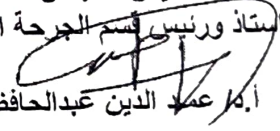 ستاذ ورئيس قسم الجرحة ا
أ.د/ عماد الدين عبدالحافظ